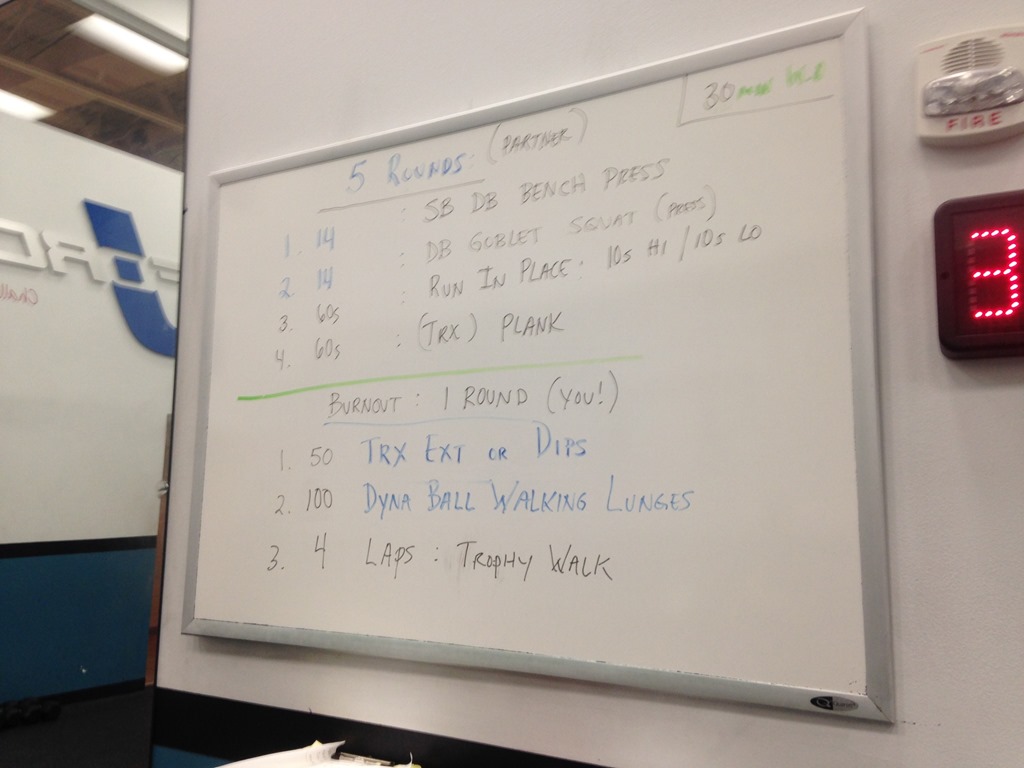 30 min
5 ROUNDS: (PARTNER)
1. 14 : SB DB BENCH PRESS
2. 14 : DB GOBLET SQUAT (PRESS)
3. 60s : RUN IN PLACE: 10s HI / 10s LO
4. 60s : (TRX) PLANK
BURNOUT: 1 ROUND (YOU!)
1. 50 TRX EXT OR DIPS
2. 100 DYNA BALL WALKING LUNGES
3. 4 LAPS: TROPHY WALK
FIRE
3